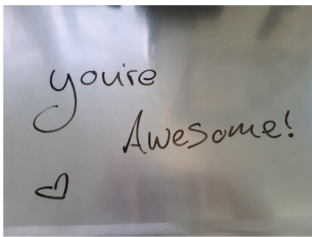 you're
Awesome!